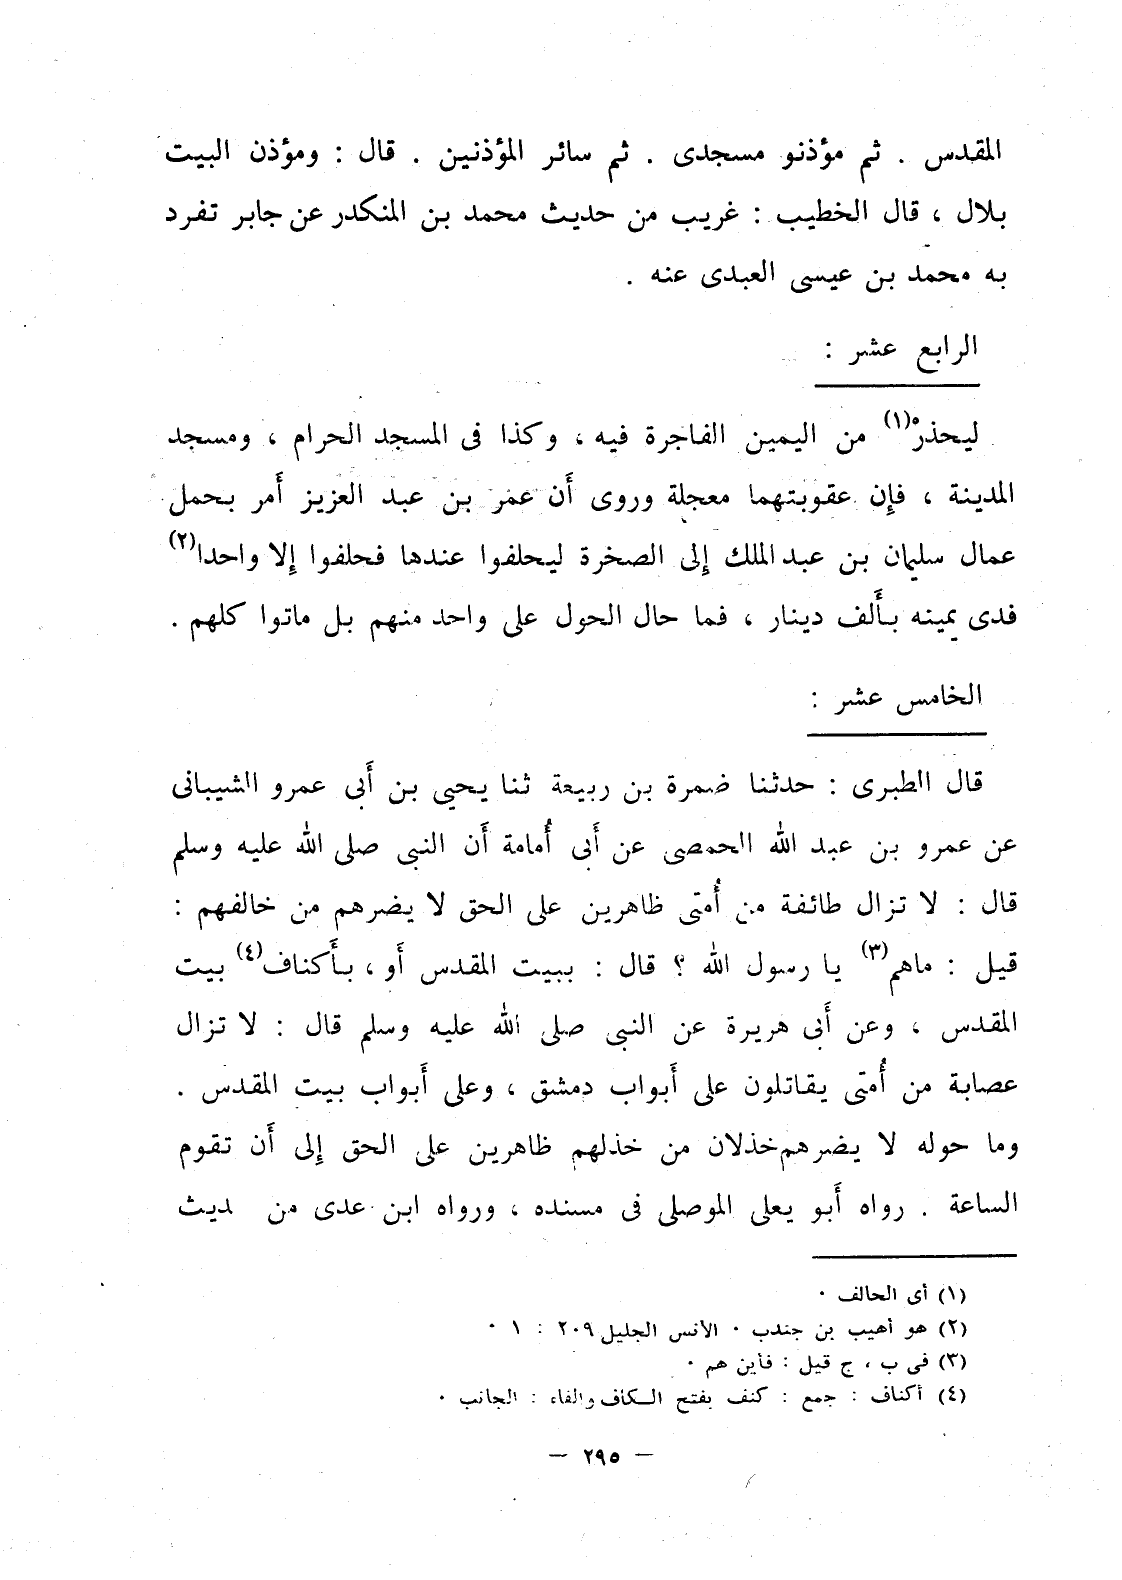 المقدس . ثم مؤذنو مسجدى . ثم سائر المؤذنين . قال : ومؤذن البيت
بلال ، قال الخطيب : غريب من حديث محمد بن المنكدر عن جابر تفرد
به محمد بن عيسى العبدى عنه .
الرابع عشر :
ليحذرْ(١) من اليمين الفاجرة فيه ، وكذا فى المسجد الحرام ، ومسجد
المدينة ، فإن عقوبتهما معجلة وروى أن عمر بن عبد العزيز أمر بحمل
عمال سليمان بن عبد الملك إلى الصخرة ليحلفوا عندها فحلفوا إلا واحدا(٢)
فدى يمينه بألف دينار ، فما حال الحول على واحد منهم بل ماتوا كلهم .
الخامس عشر :
قال الطبرى : حدثنا ضمرة بن ربيعة ثنا يحيى بن أبى عمرو الشيبانى
عن عمرو بن عبد الله الحمصى عن أبى أُمامة أن النبى صلى الله عليه وسلم
قال : لا تزال طائفة من أُمتى ظاهرين على الحق لا يضرهم من خالفهم :
قيل : ماهم(٣) يا رسول الله ؟ قال : ببيت المقدس أو ، بأكناف(٤) بيت
المقدس ، وعن أبى هريرة عن النبى صلى الله عليه وسلم قال : لا تزال
عصابة من أُمتى يقاتلون على أبواب دمشق ، وعلى أبواب بيت المقدس .
وما حوله لا يضرهم خذلان من خذلهم ظاهرين على الحق إلى أن تقوم
الساعة . رواه أبو يعلى الموصلى فى مسنده ، ورواه ابن عدى من
(١) أى الحالف .
(٢) هو أهيب بن جندب . الأنس الجليل ٢٠٩ : ١ .
(٣) فى ب ، ج قيل : فأين هم .
(٤) أكناف : جمع : كنف بفتح الكاف والفاء : الجانب .
— ٢٩٥ —